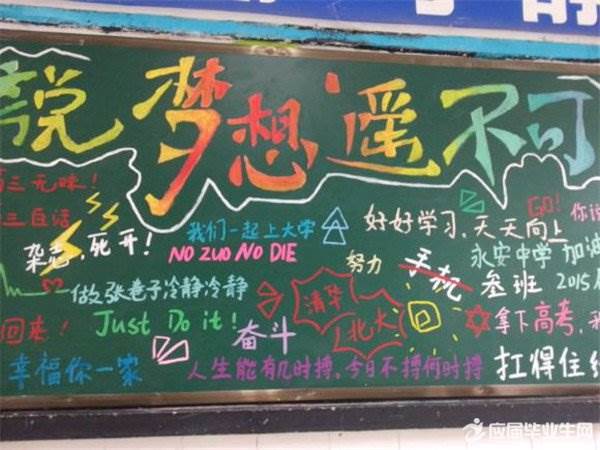 说梦想遥不可
我们一起上大学
好好学习,天天向上
GO! 你说
杂志,死开!
NO ZUO NO DIE
努力
手机
永安中学 加油
叁班 2015
做张卷子冷静冷静
清华
北大
回来!
Just Do it!
奋斗
拿下高考,
幸福你一家
人生能有几时搏,今日不搏何时搏
扛得住
应届毕业生网